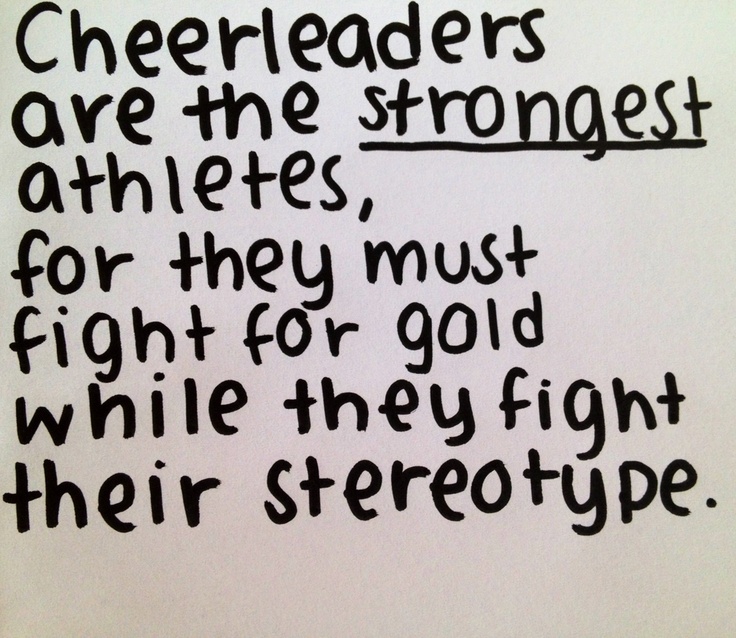 Cheerleaders
are the strongest
athletes,
for they must
fight for gold
while they fight
their stereotype.